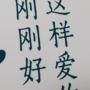 这样爱
刚刚好